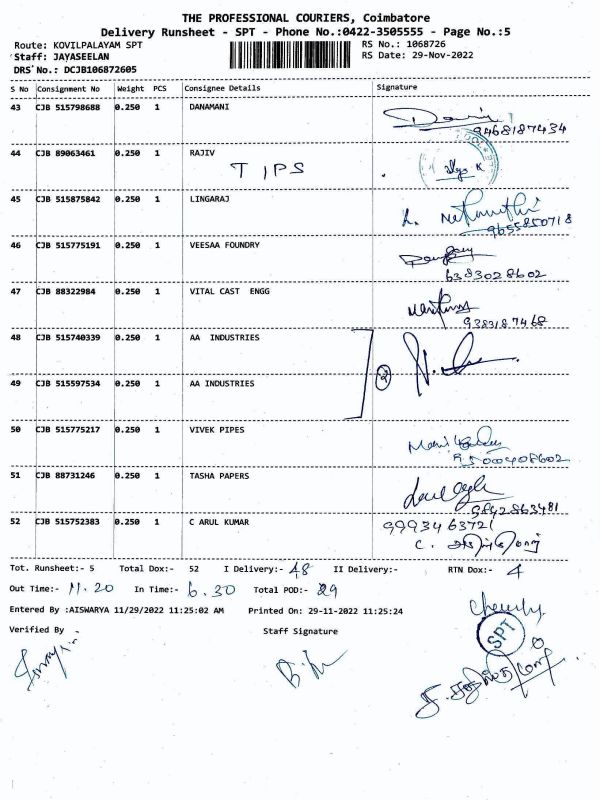 THE PROFESSIONAL COURIERS, Coimbatore
Delivery Runsheet - SPT - Phone No.:0422-3505555 - Page No.:5
Route: KOVILPALAYAM SPT RS No.: 1068726
Staff: JAYASEELAN RS Date: 29-Nov-2022
DRS No.: DCJB106872605
S No Consignment No Weight PCS Consignee Details Signature
43 CJB 515798688 0.250 1 DANAMANI
9468187434
44 CJB 89063461 0.250 1 RAJIV
TIPS
45 CJB 515875842 0.250 1 LINGARAJ
9655850718
46 CJB 515775191 0.250 1 VEESAA FOUNDRY
6383028602
47 CJB 88322984 0.250 1 VITAL CAST ENGG
9383187468
48 CJB 515740339 0.250 1 AA INDUSTRIES
2
49 CJB 515597534 0.250 1 AA INDUSTRIES
50 CJB 515775217 0.250 1 VIVEK PIPES
9500408602
51 CJB 88731246 0.250 1 TASHA PAPERS
9842863481
52 CJB 515752383 0.250 1 C ARUL KUMAR
9993463721
Tot. Runsheet:- 5 Total Dox:- 52 I Delivery:- 48 II Delivery:- RTN Dox:- 4
Out Time:- 11.20 In Time:- 6.30 Total POD:- 29
Entered By :AISWARYA 11/29/2022 11:25:02 AM Printed On: 29-11-2022 11:25:24
Verified By Staff Signature
SPT